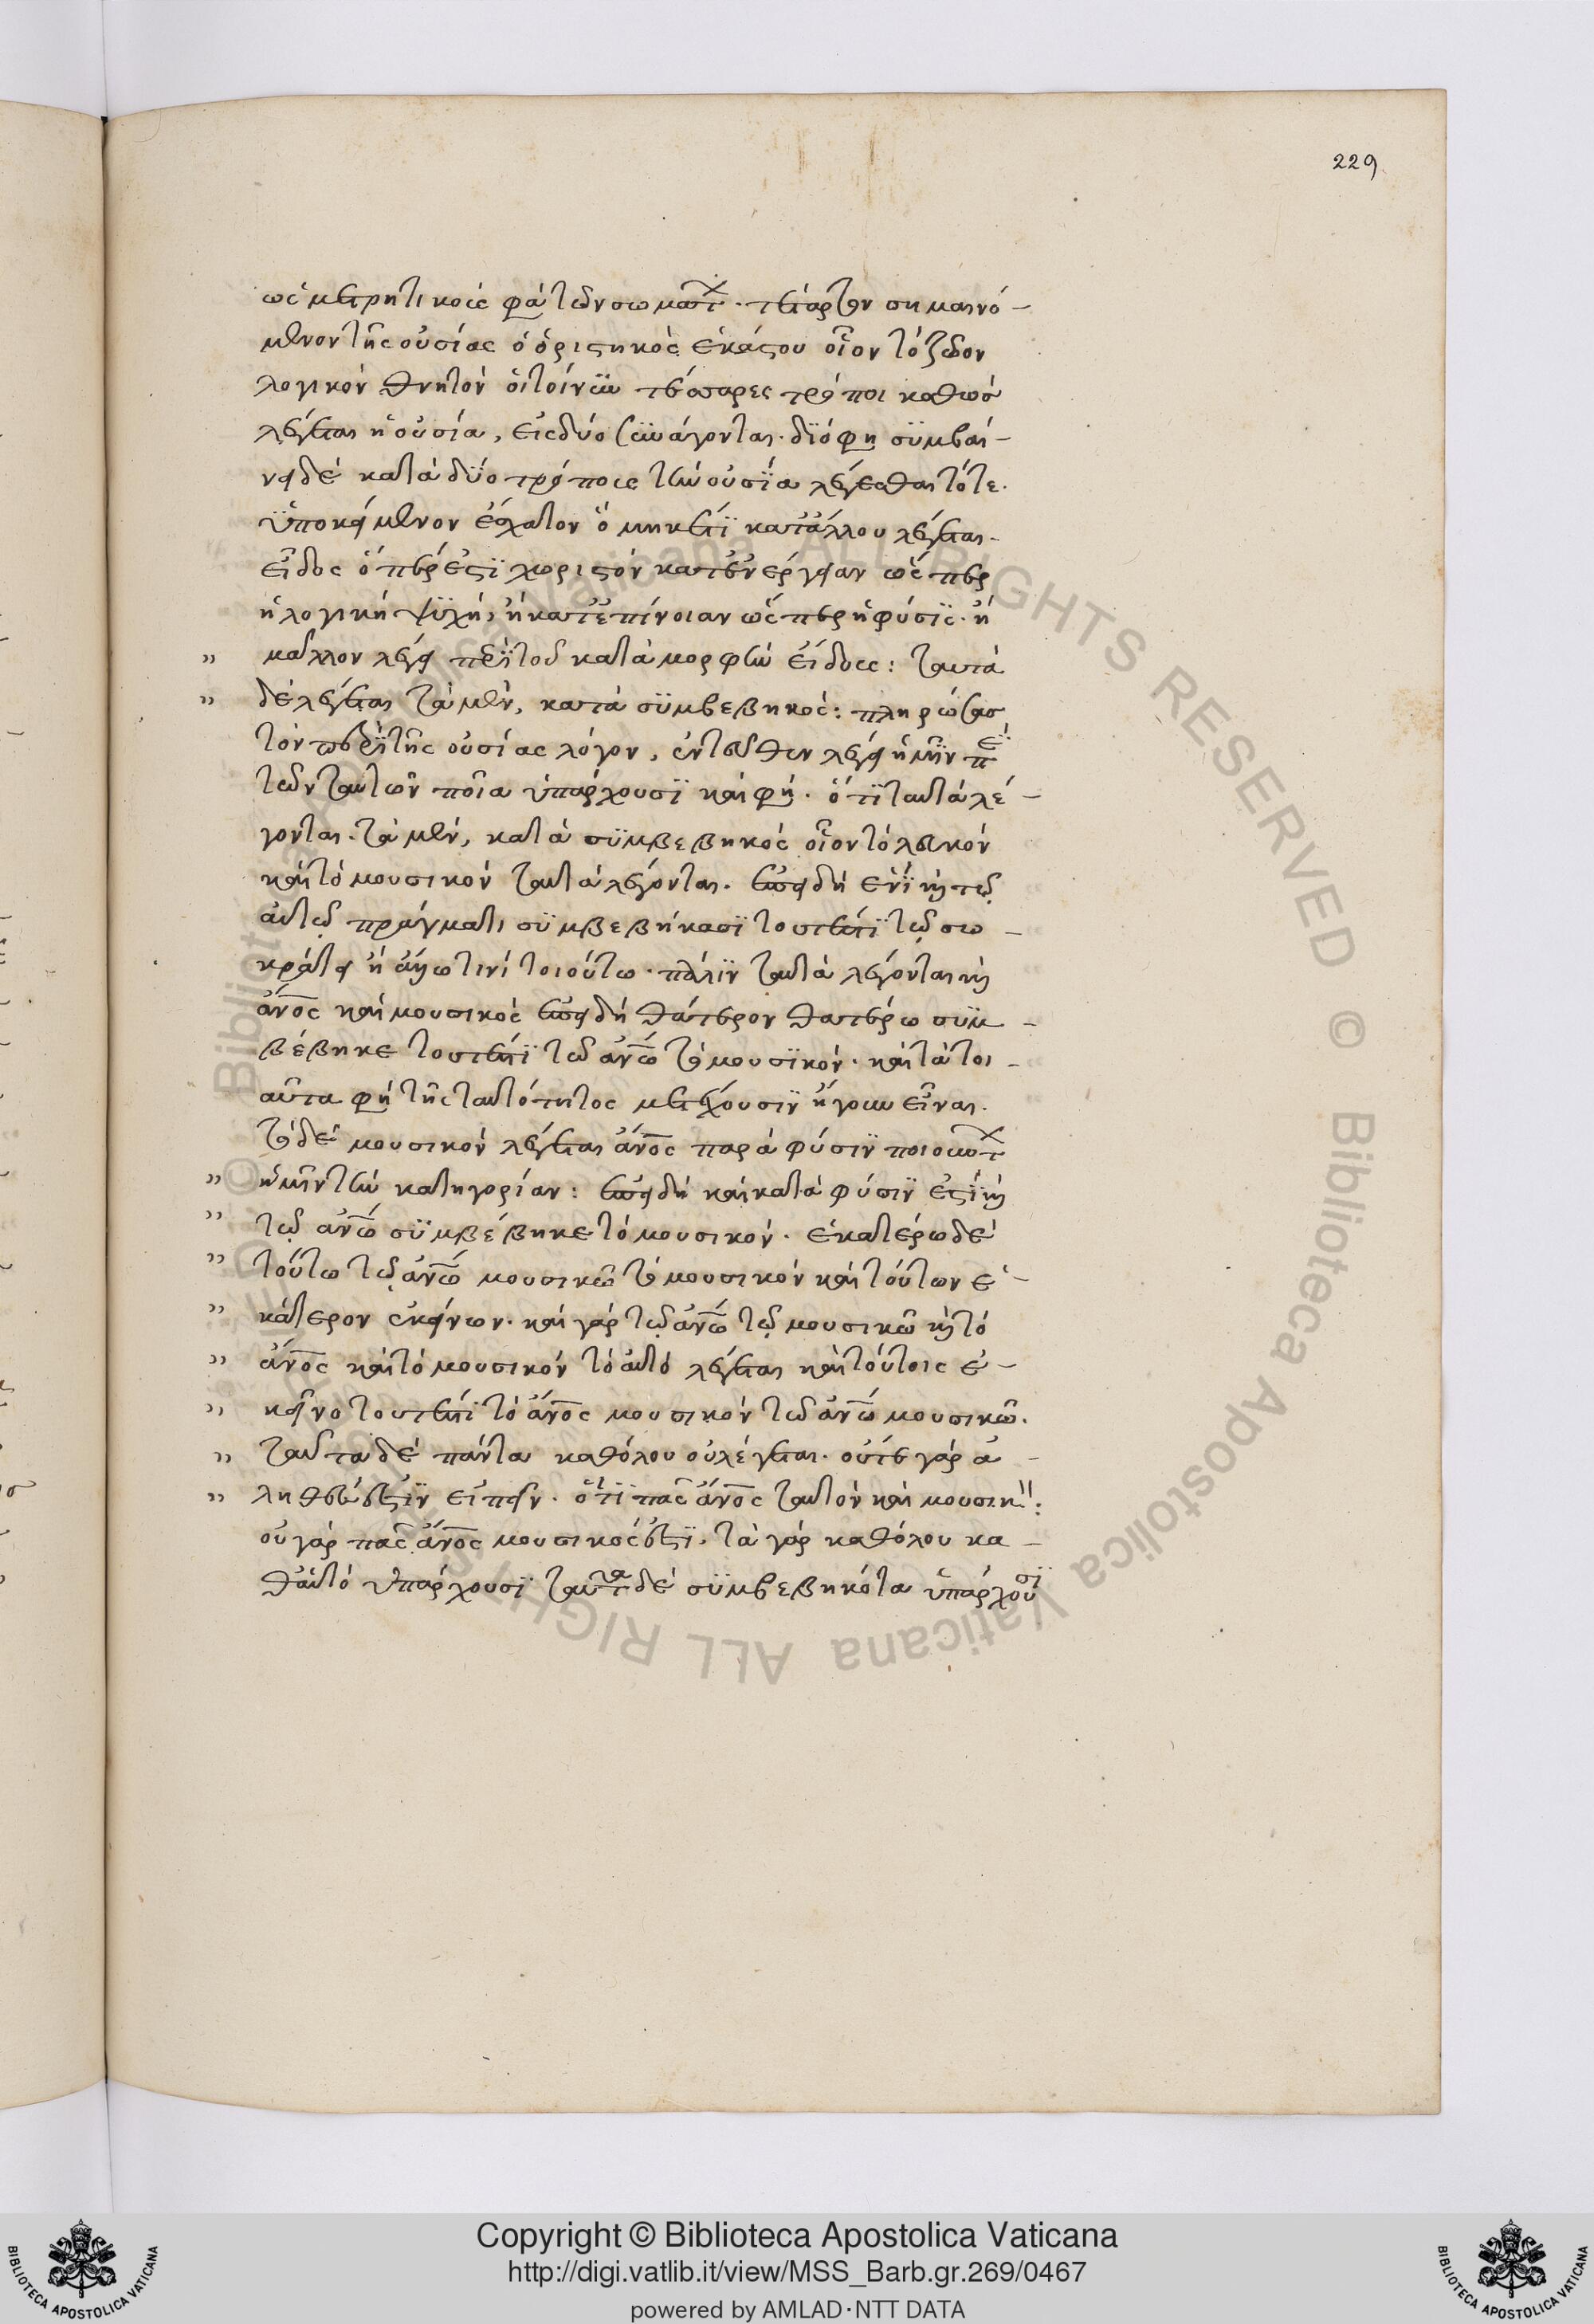 229
ὡς μετρητικοῖς φασὶ τῶν σωμάτων. τέταρτον σημαινό-
μενον τῆς οὐσίας ὁ ὁριστικὸς ἑκάστου οἷον τὸ ζῶον
λογικὸν θνητόν οἱ τοίνυν τέσσαρες τρόποι καθ' οὓς
λέγεται ἡ οὐσία, εἰς δύο συνάγονται. διό φησι συμβαί-
νει δὲ κατὰ δύο τρόπους τὴν οὐσίαν λέγεσθαι τό τε.
ὑποκείμενον ἔσχατον ὃ μηκέτι κατ' ἄλλου λέγεται.
εἶδος ὅπερ ἐστὶ χωριστὸν κατ' ἐνέργειαν ὥσπερ
ἡ λογικὴ ψυχή, ἢ κατ' ἐπίνοιαν ὥσπερ ἡ φύσις. ἢ
μᾶλλον λέγει περὶ τοῦ κατὰ μορφὴν εἴδους: ταυτὰ
δὲ λέγεται τὰ μὲν, κατὰ συμβεβηκός: πληρώσας
τὸν περὶ τῆς οὐσίας λόγον, ἐντεῦθεν λέγει ἡμῖν περὶ
τῶν ταυτῶν ποῖα ὑπάρχουσι καί φησι. ὅτι ταυτὰ λέ-
γονται. τὰ μὲν, κατὰ συμβεβηκὸς οἷον τὸ λευκὸν
καὶ τὸ μουσικὸν ταυτὰ λέγονται. ἐπειδὴ ἑνὶ καὶ τῷ
αὐτῷ πράγματι συμβεβήκασι τουτέστι τῷ σω-
κράτει ἢ ἄλλω τινὶ τοιούτω. πάλιν ταυτὰ λέγονται καὶ
ἄνος καὶ μουσικὸς ἐπειδὴ θάτερον θατέρω συμ-
βέβηκε τουτέστι τῶ ἀνῶ τὸ μουσικόν. καὶ τὰ τοι-
αῦτα φησὶ τῆς ταυτότητος μετέχουσιν ἤγουν εἶναι.
τὸ δὲ μουσικὸν λέγεται ἄνος παρὰ φύσιν ποιούντων
ἡμῶν τὴν κατηγορίαν: ἐπειδὴ καὶ κατὰ φύσιν ἐστὶ καὶ
τῷ ἀνῶ συμβέβηκε τὸ μουσικόν. ἑκατέρω δὲ
τούτω τῷ ἀνῶ μουσικῶ τὸ μουσικὸν καὶ τούτων ἑ-
κάτερον ἐκείνων. καὶ γὰρ τῷ ἀνῶ τῷ μουσικῶ καὶ τὸ
ἄνος καὶ τὸ μουσικὸν τὸ αὐτὸ λέγεται καὶ τούτοις ἐ-
κεῖνο τουτέστι τὸ ἄνος μουσικὸν τῶ ἀνῶ μουσικῶ.
ταῦτα δὲ πάντα καθόλου οὐ λέγεται. οὔτε γὰρ ἀ-
ληθές ἐστιν εἰπεῖν. ὅτι πᾶς ἄνος ταυτὸν καὶ μουσικόν:
οὐ γὰρ πᾶς ἄνος μουσικός ἐστι, τὰ γὰρ καθόλου κα-
θ' αὑτὸ ὑπάρχουσι ταῦτα δὲ συμβεβηκότα ὑπάρχουσι
Copyright © Biblioteca Apostolica Vaticana
http://digi.vatlib.it/view/MSS_Barb.gr.269/0467
powered by AMLAD·NTT DATA